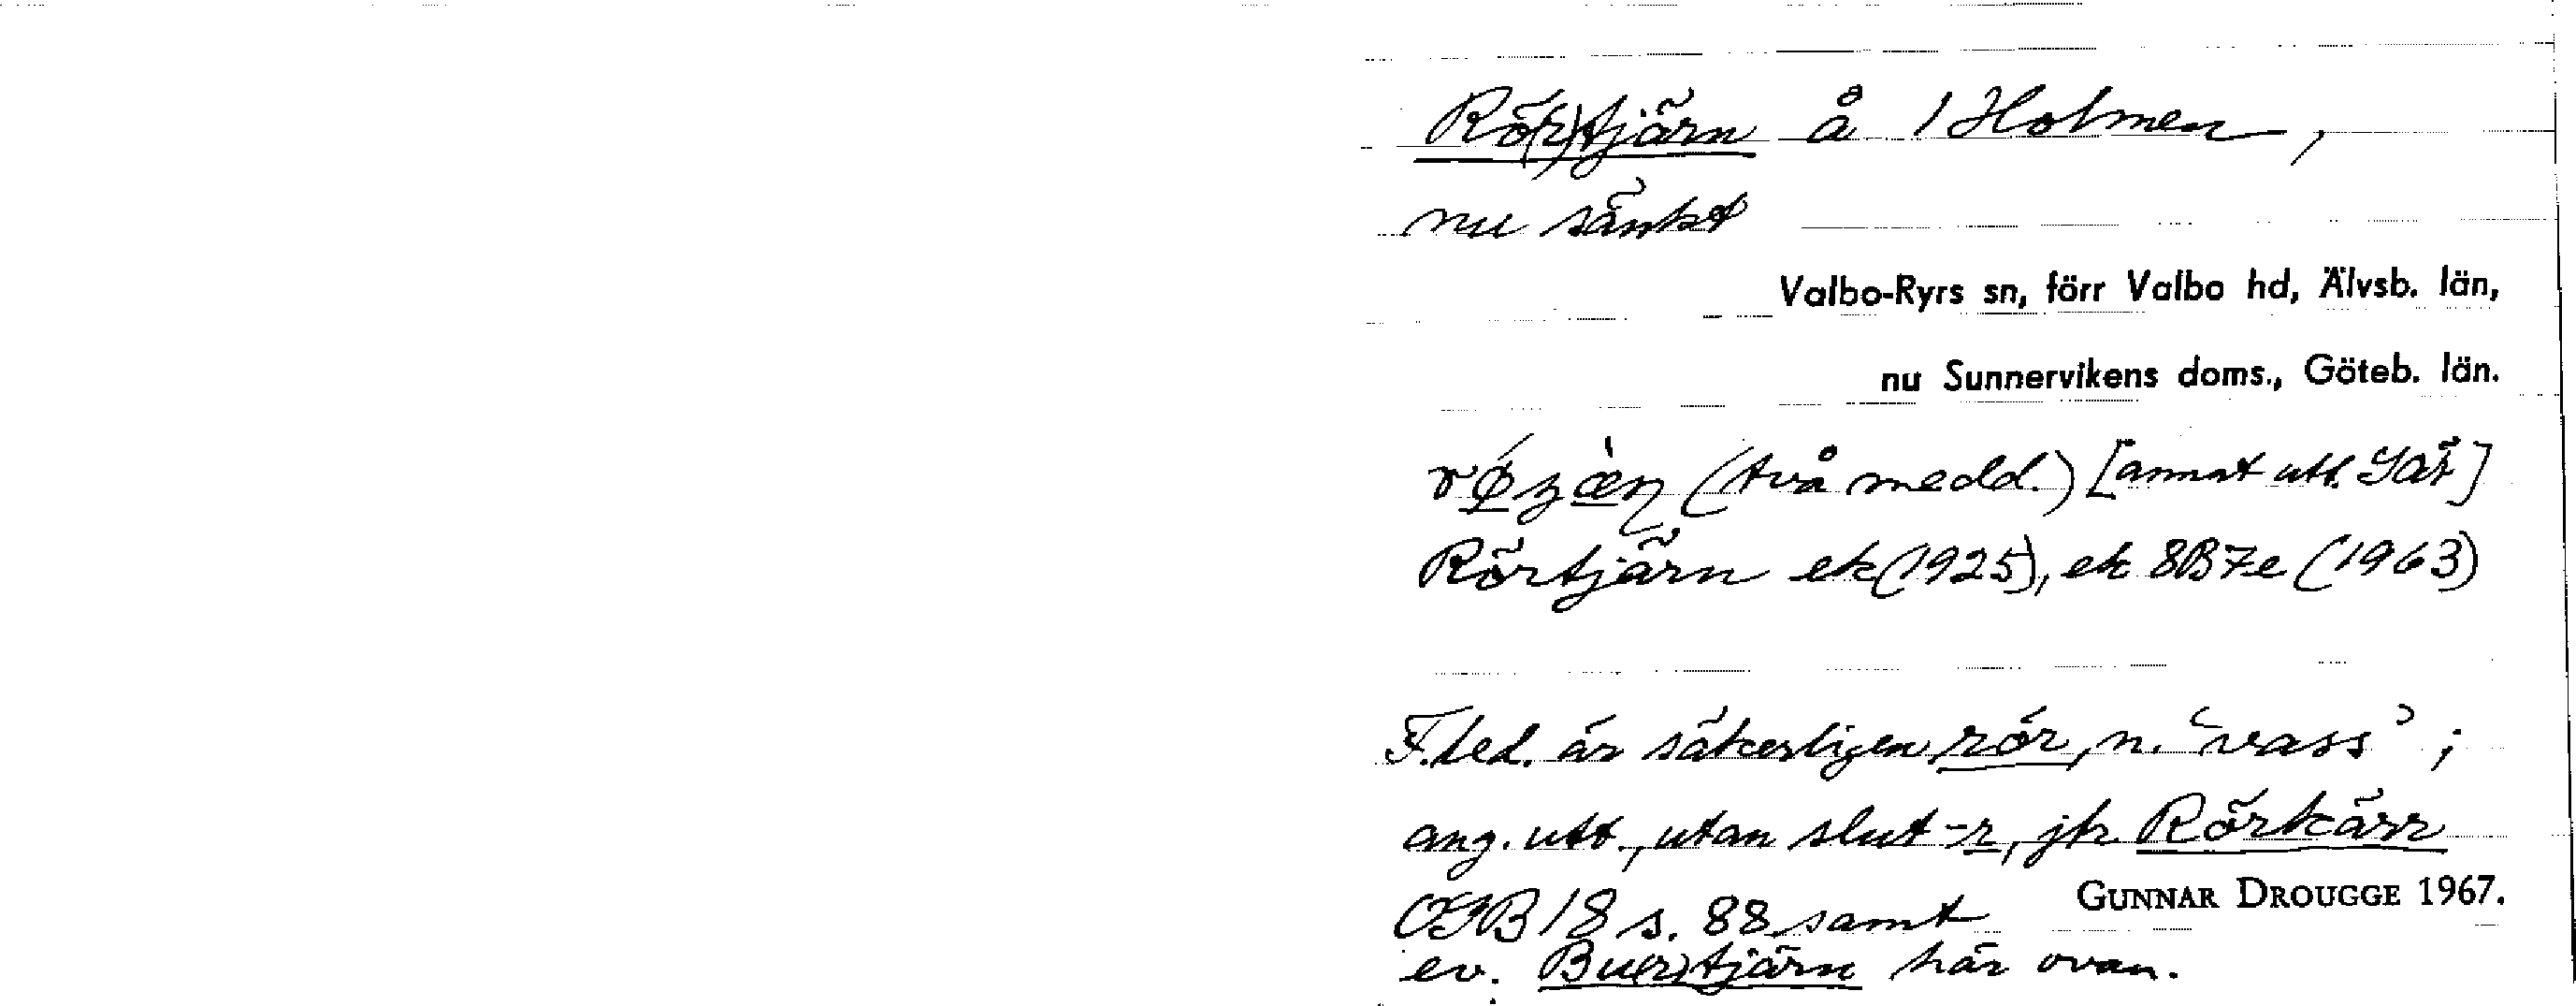 Rö(r)tjärn å 1 Holmen,
nu sänkt
Valbo-Ryrs sn, förr Valbo hd, Älvsb. län,
nu Sunnervikens doms., Göteb. län.
(två medd.) [annat utt.
Rörtjärn ek (1925), ek 8B7e (1963)
F.led. är säkerligen rör, n. "vass";
ang. utt., utan slut -r, jfr Rörkärr
OGB 18 s. 88 samt
GUNNAR DROUGGE 1967.
ev. Bu(r)tjärn här ovan.